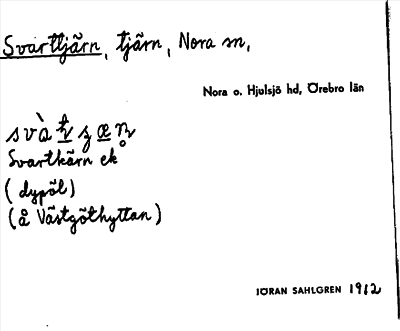 Svarttjärn, tjärn, Nora sn,
Nora o. Hjulsjö hd, Örebro län
Svartkärn ek
(dypöl)
(å Västgöthyttan)
JÖRAN SAHLGREN 1912